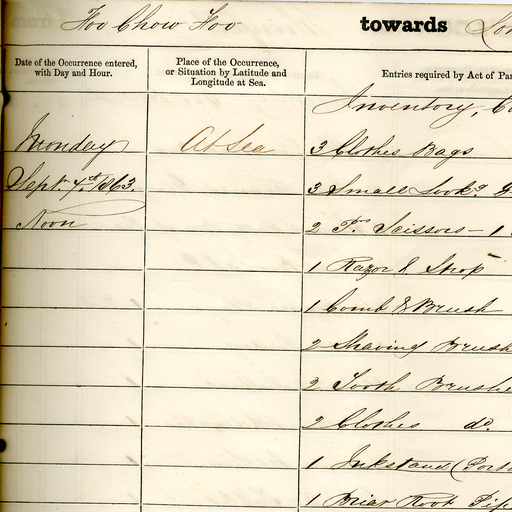 Foo Chow Foo towards Lon
Date of the Occurrence entered, with Day and Hour.
Place of the Occurrence, or Situation by Latitude and Longitude at Sea.
Entries required by Act of Par
Inventory, Co
Monday At Sea 3 Clothes Bags
Sept. 7th 1863. 3 Small Look.g G
Noon 2 Prs Scissors – 1
1 Razor & Strop
1 Comb & Brush
2 Shaving Brush
2 Tooth Brushe
2 Clothes do.
1 Inkstand (Porta
1 Briar Root Pip